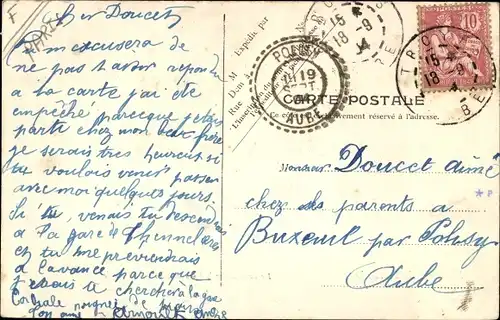 Cher Doucet
Tu m'excusera de
ne pas t'avoir repondu
a ta carte j'ai ete
empêché parceque j'etais
parti chez mon
je serais tres heureux si
tu voulais venir passer
avec moi quelques jours
Si tu venais tu rescendrais
a la gare de
et tu me previendrais
d'avance parce que
j'irais te chercher à la gare
Cordiale poignée de main
Ton ami
PARIS
Expédié par
M
Dem
Rue
POUGY
19
SEPT
AUBE
TROYES
15
18 - 9
AUBE
10
CARTE POSTALE
Ce côté est exclusivement réservé à l'adresse.
Monsieur Doucet Aimé
chez ses parents a
par Pougy
Aube